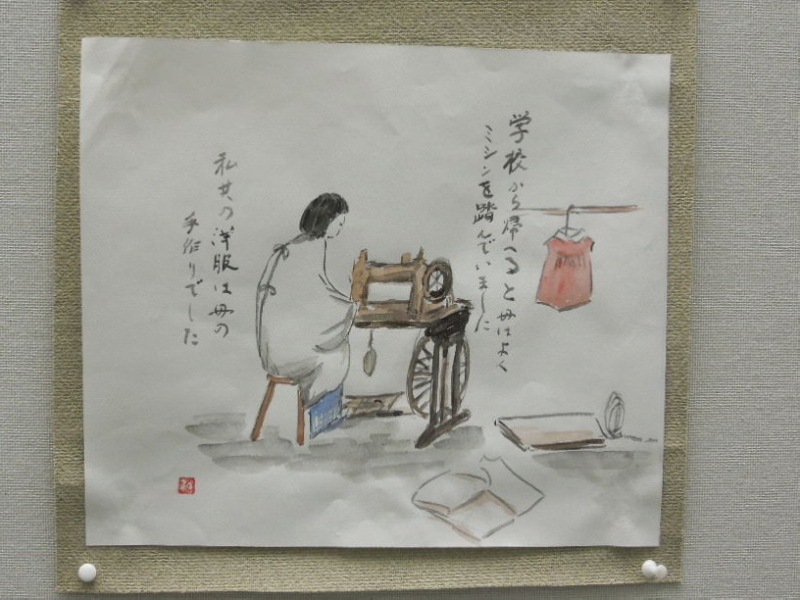 学校から帰へると母はよく
ミシンを踏んでいました
私共の洋服は母の
手作りでした